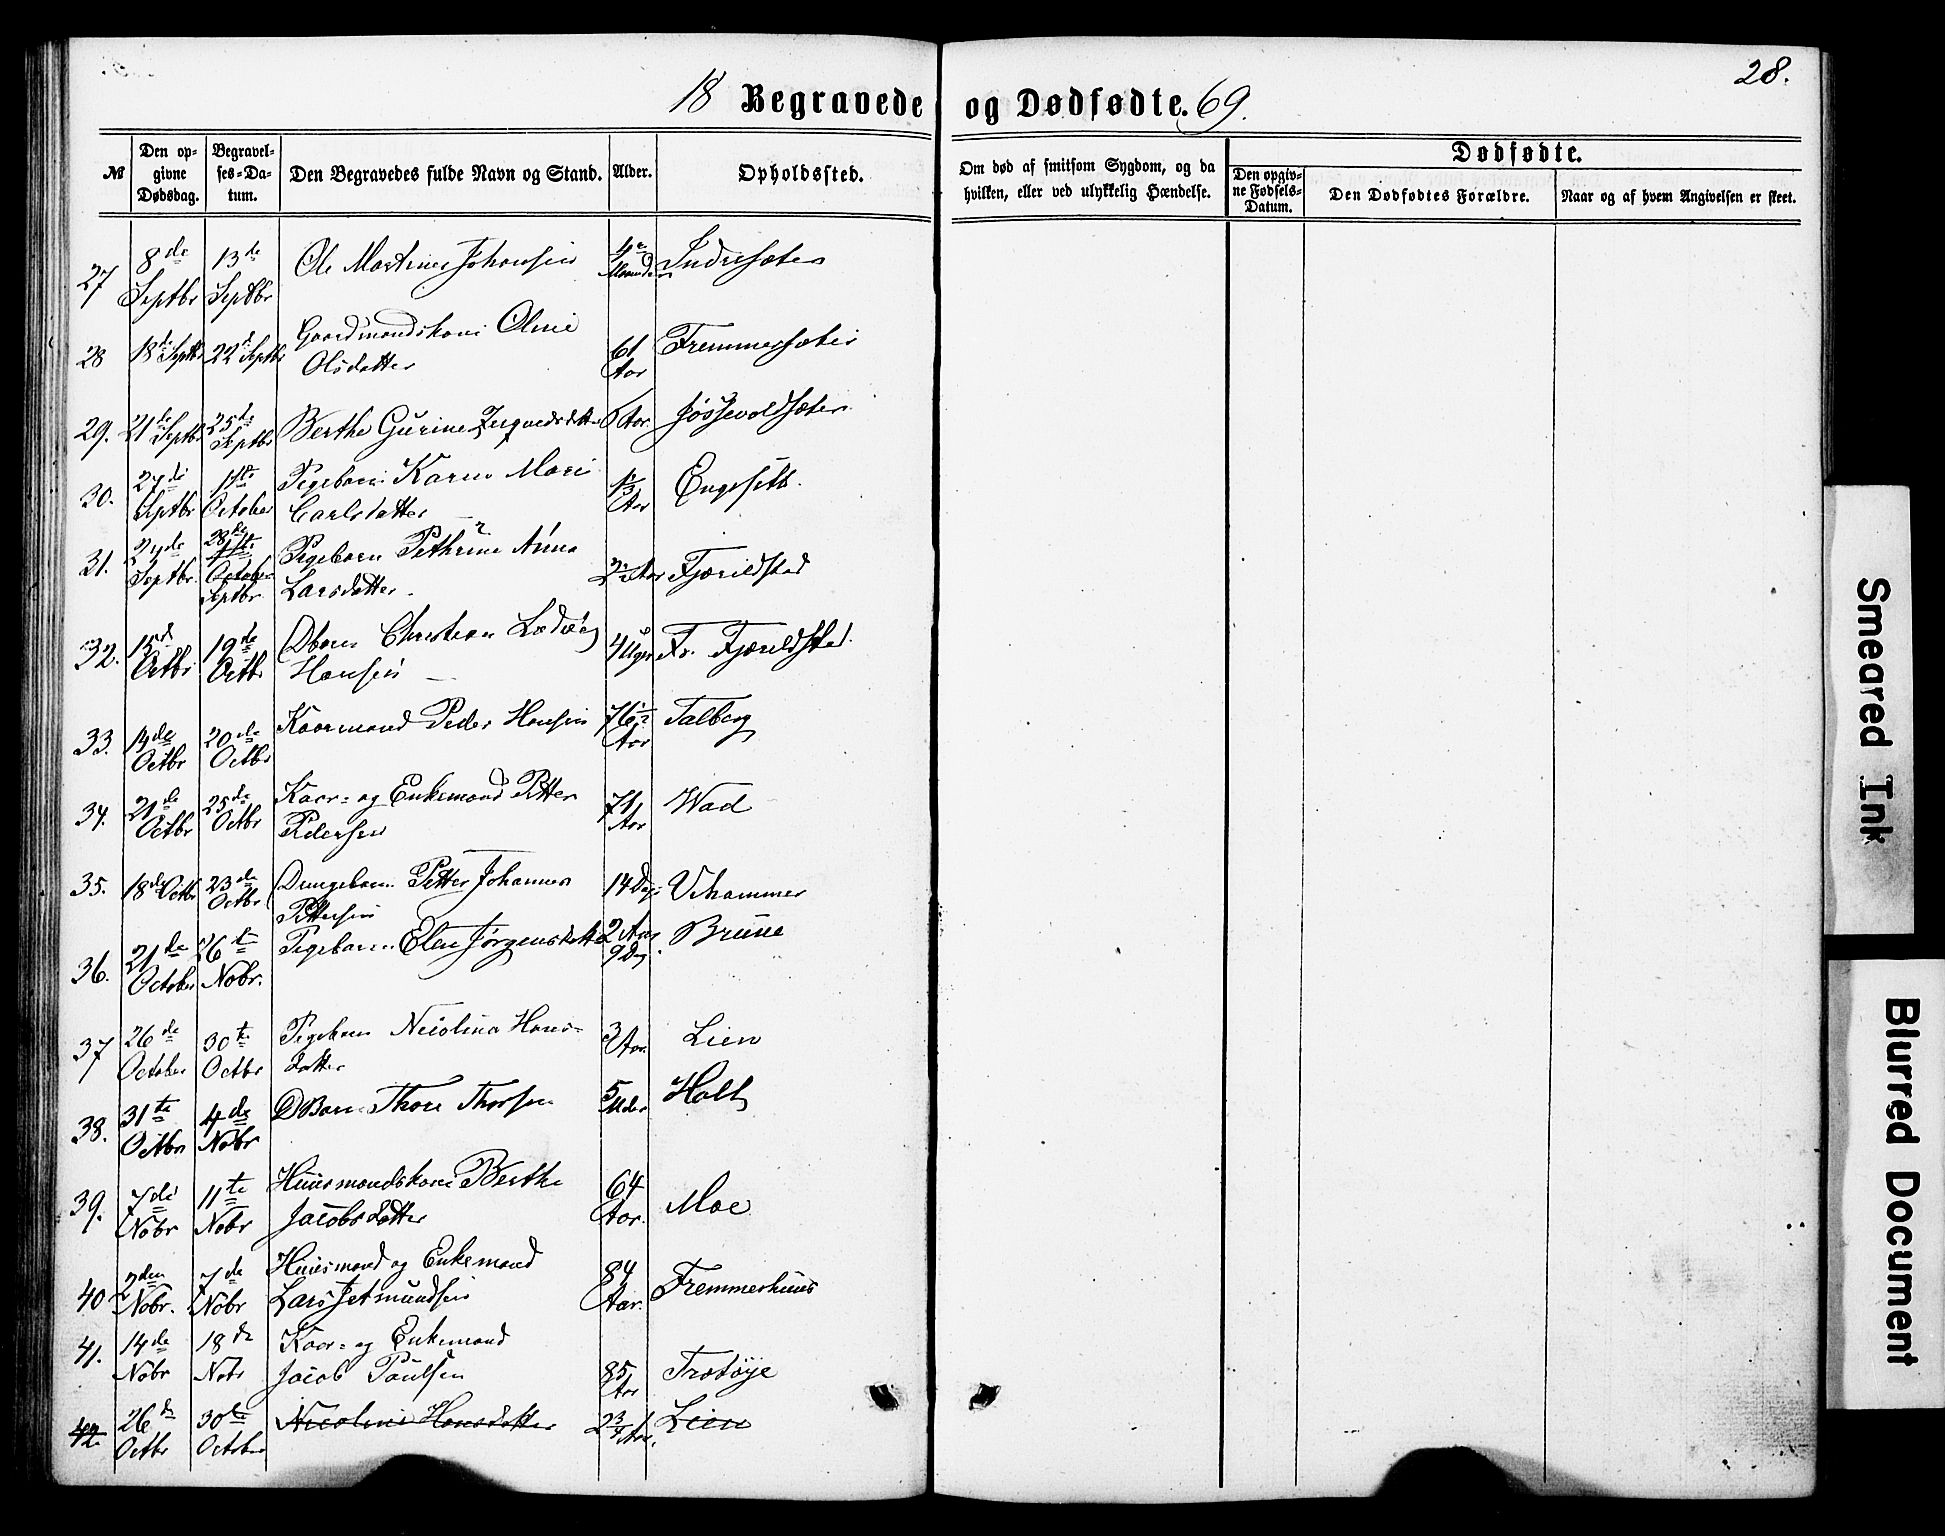 28.
18 Begravede og Dødfødte. 69.
№
Den op-
givne
Dødsdag.
Begravel-
ses-Da-
tum.
Den Begravedes fulde Navn og Stand.
Alder.
Opholdssted.
Om død af smitsom Sygdom, og da
hvilken, eller ved ulykkelig Hændelse.
Dødfødte.
Den opgiv-
ne Fødsels-
Datum.
Den Dødfødtes Forældre.
Naar og af hvem Angivelsen er skeet.
27 8de Septbr 13de Septbr Ole Martinus Johansen 4 Indresæter
28 18de Septbr 22de Septbr Gaardmandskone Oline
Olsdatter 61 Aar Fremmersæter
29. 21de Septbr 25de Septbr Berthe Gurine Aar Jøssevoldsæter
30. 27de Septbr 1ste October Pigebarn Karen Mari
Carlsdatter Aar Engesett.
31. 24de Septbr. 28de 1ste October Septbr. Pigebarn Pethrine Anna
Larsdatter 2 Aar Fjærildstad
32. 15d Octbr 19de Octbr Dbarn Christian Ludvig
Hansen 4 Uger Fr. Fjærildstad.
33. 14de Octbr 20de Octbr Kaarmand Peder Hansen 76 1/2 Aar Talberg
34. 21de Octbr 25de Octbr Kaar- og Enkemand Petter
Pedersen 71 Aar Wad
35. 18de Octbr 23de Octbr Drengebarn Petter Johannes
Pettersen 14 Dage Vihammer
36. 21de October 26te Nobr. Pigebarn Elen Jørgensdatter 2 Aar
9 Dag Brune
37 26de October 30te Octbr Pigebarn Nicolina Hans-
datter 3 Aar. Lien
38. 31te Octbr 4de Nobr DBarn Thore Thorsen 5 Mdr Holt
39. 7de Nobr 11te Nobr Huusmandskone Berthe
Jacobsdatter 64 Aar. Moe
40 2den Nobr. 7de Nobr Huusmand og Enkemand
Lars Jetmundsen 84 Aar. Fremmerhuus
41. 14de Nobr 18de Nobr Kaar- og Enkemand
Jacob Paulsen 85 Aar Trotøje
42 26de Octbr 30te October Nicoline Hansdatter 2 3/4 Aar. Lien
Smeared Ink
Blurred Document